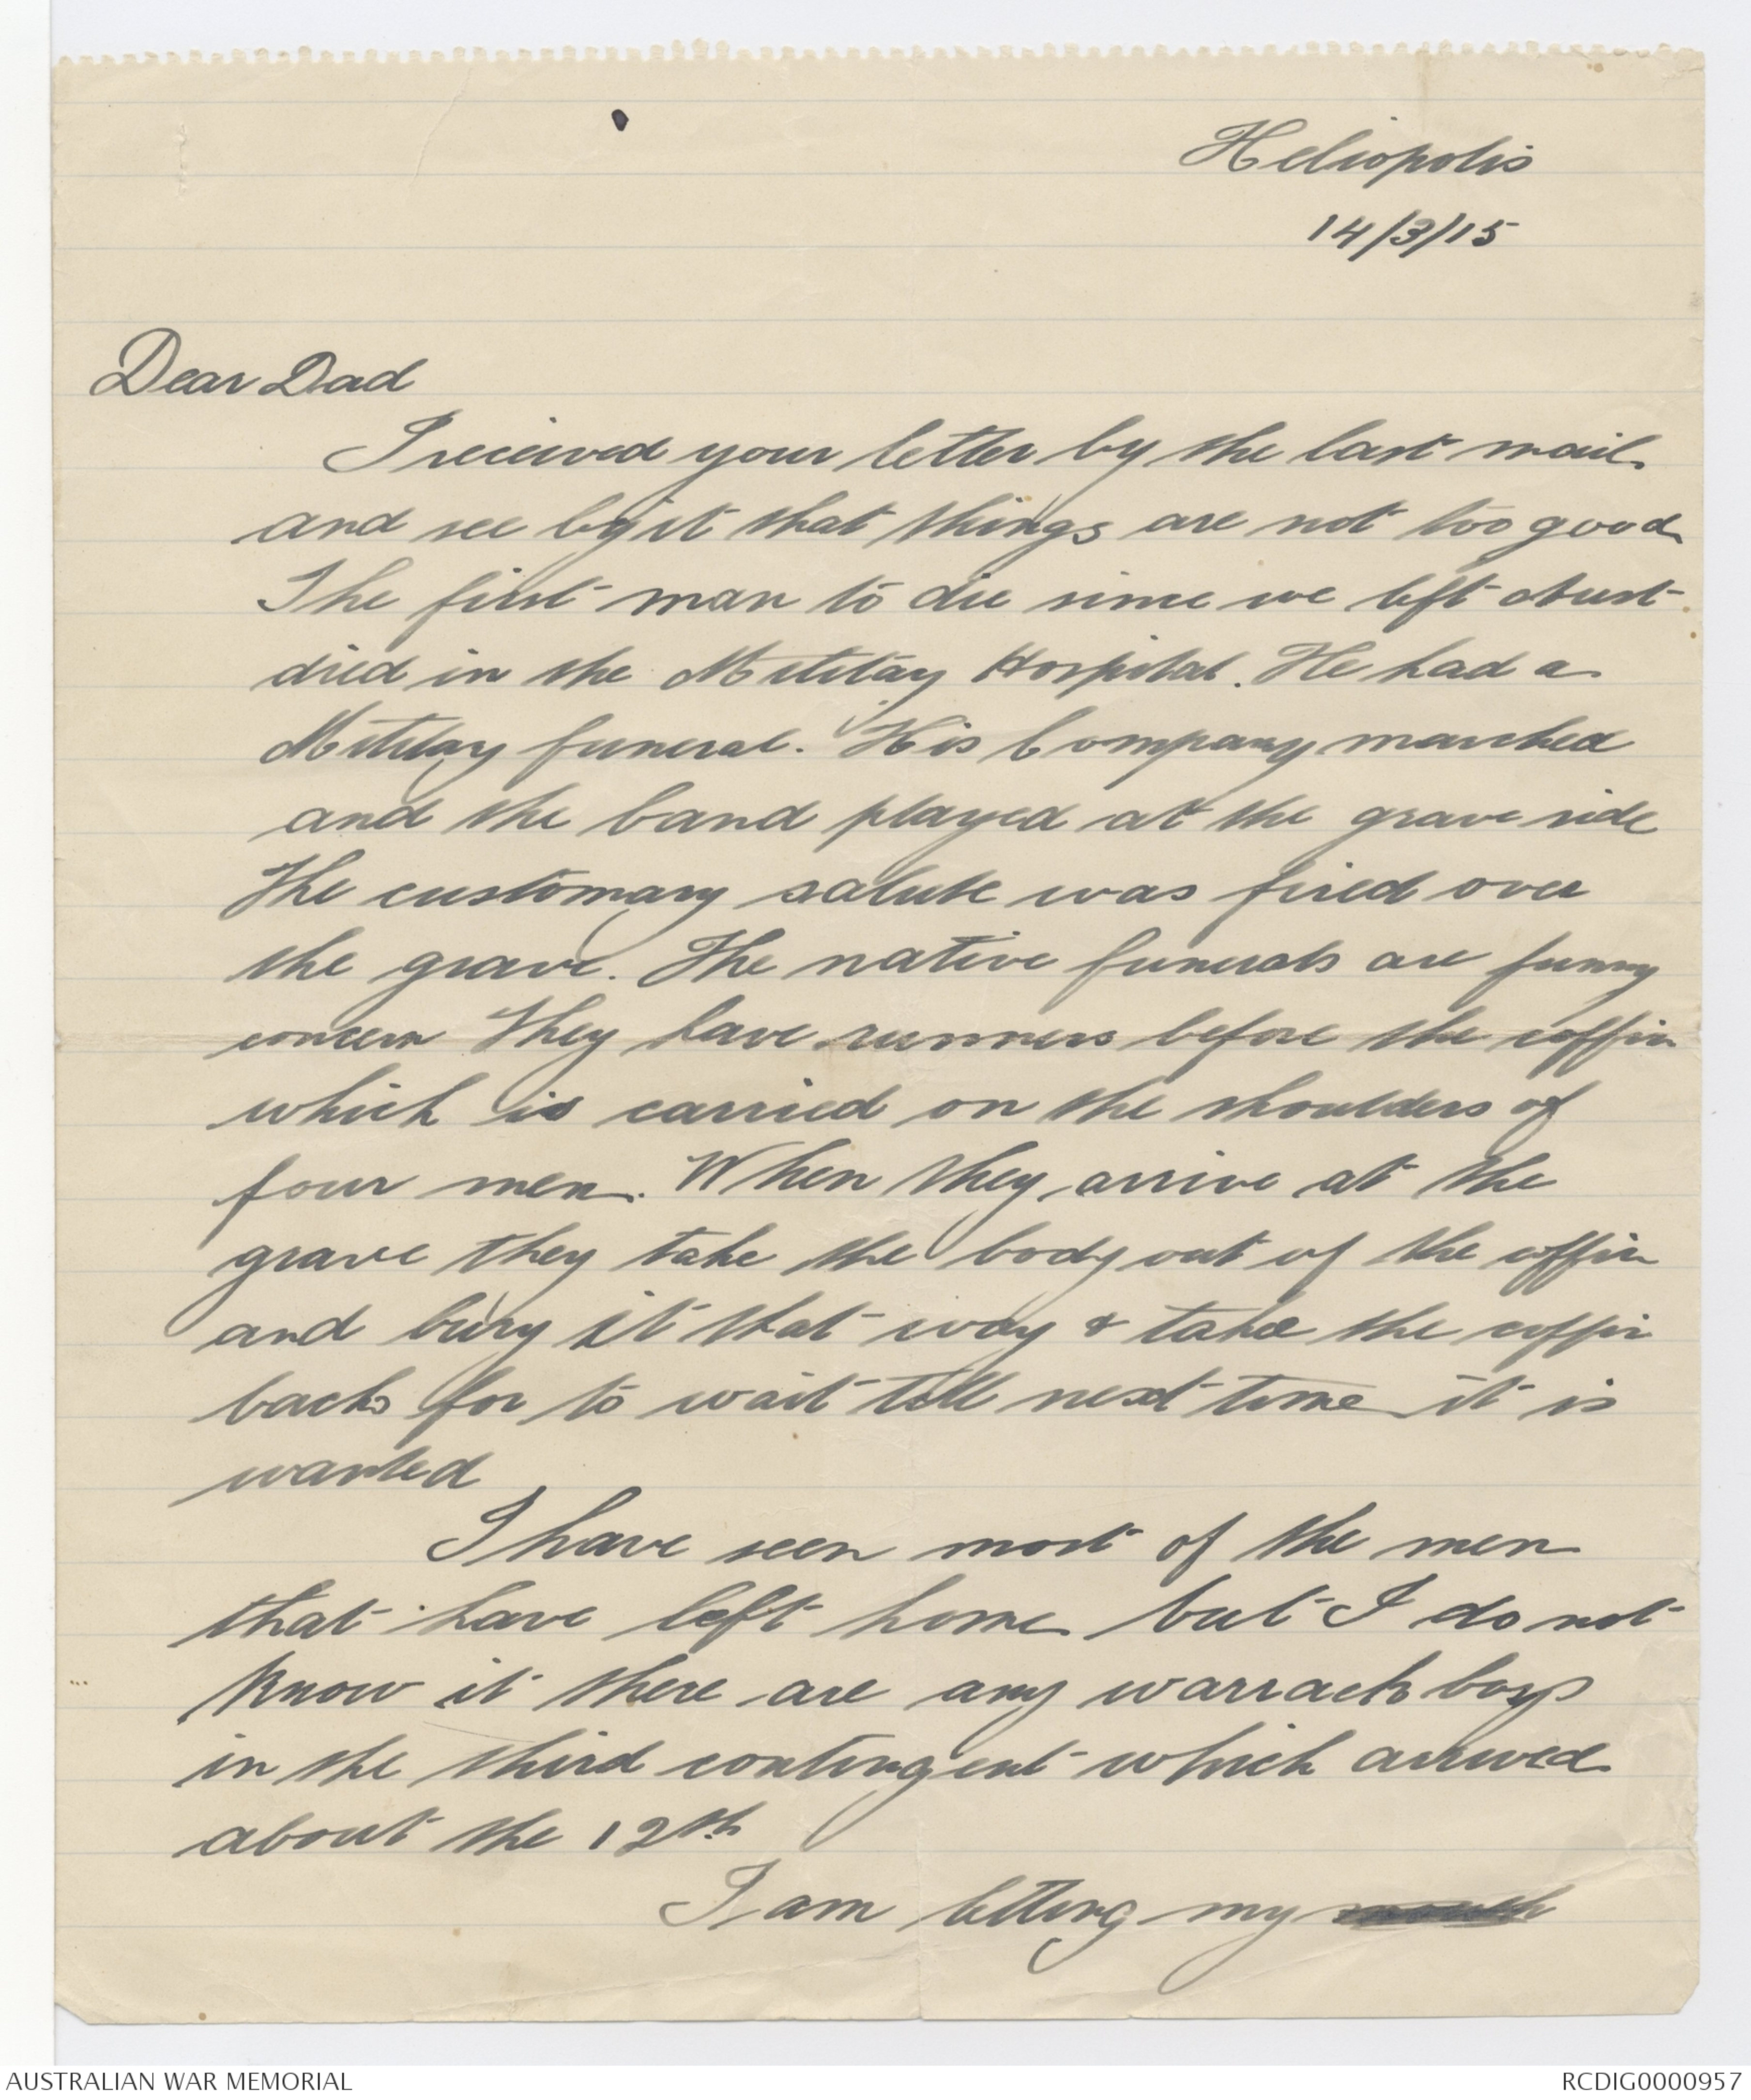 Heliopolis
14/3/15
Dear Dad
I received your letter by the last mail
and see by it that things are not too good
The first man to die since we left Aust-
died in the Mititay Hospital. He had a
Mititay funeral. His Company marched
and the band played at the grave side
The customary salute was fired over
the grave. The native funerals are funny
concern They have runners before the coffin
which is carried on the shoulders of
four men. When they arrive at the
grave they take the body out of the coffin
and bury it that way & take the coffin
back for to wait till next time it is
wanted
I have seen most of the men
that have left home but I do not
know it there are any warrack boys
in the third contingent which arrived
about the 12th
I am letting my
AUSTRALIAN WAR MEMORIAL
RCDIG0000957